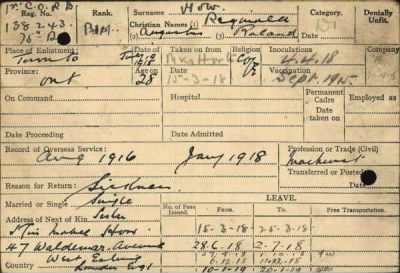 Rank. Surname How. Category. Dentally Unfit.
38243 Christian Names Reginald
75 B BSM. Augustus Roland
Place of Enlistment: Date of Taken on from Religion Inoculations Company
Toronto 4.4.18
Province: Age on C of E Vaccination
Ont 28 15-3-18 Sept. 1915
On Command Hospital Permanent Cadre Employed as
Taken on
Date Proceeding Date Admitted
Record of Overseas Service: Profession or Trade (Civil)
Aug 1916 Jany 1918 Machinist
Transferred or Posted
Reason for Return: Sickness
Married or Single Single LEAVE.
Address of Next of Kin Sister No. of Pass Issued. From: To: Free Transportation.
Miss Mabel How 15-3-18 25-3-18
47 Waldemar Avenue 28.6.18 2-7-18
West Ealing
London Eng 10-1-19 20-1-19